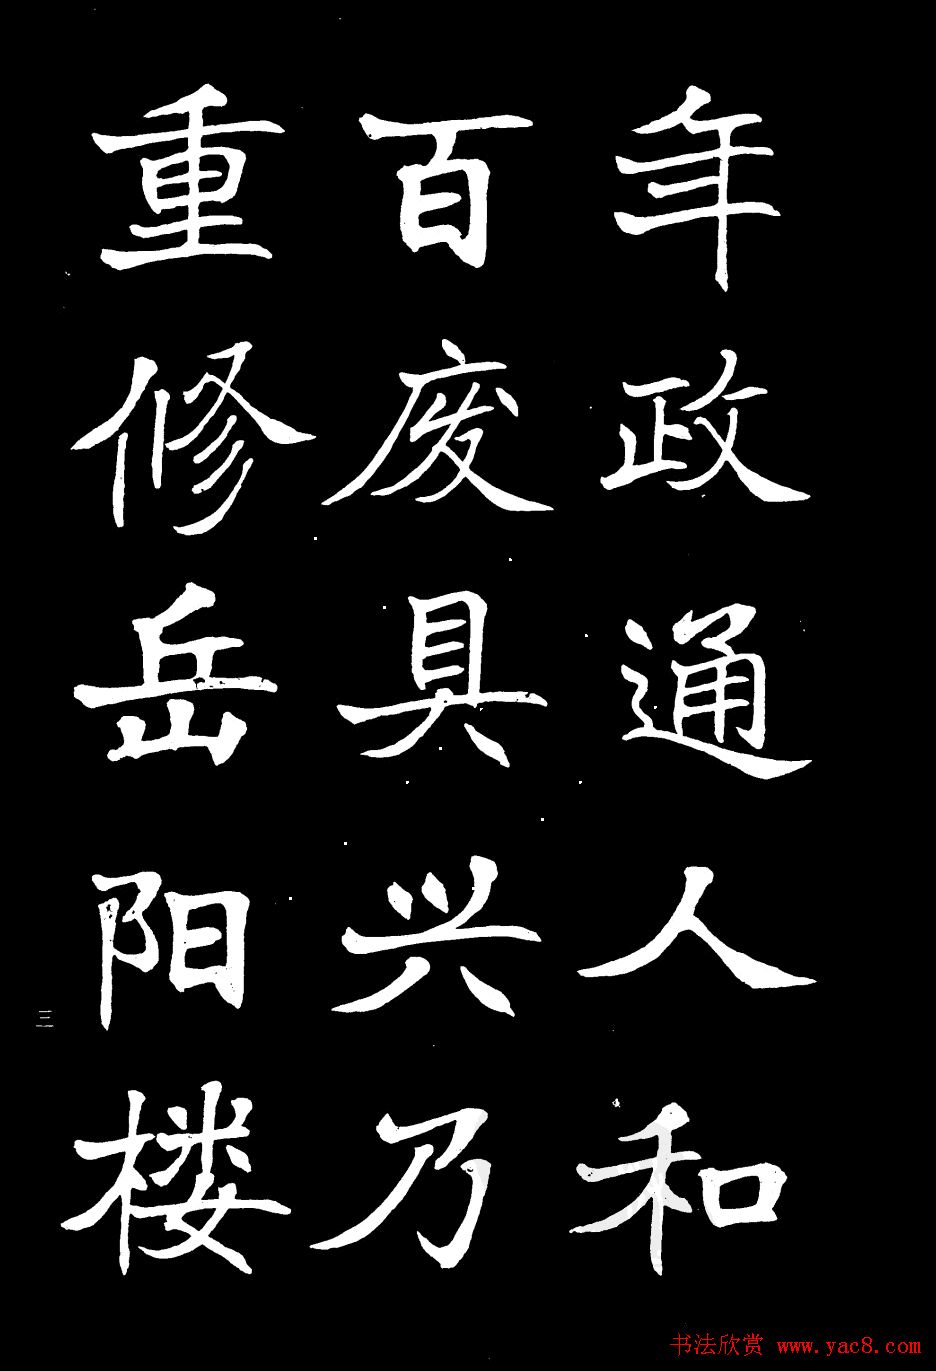 年政通人和
百废具兴乃
重修岳阳楼
三
书法欣赏 www.yac8.com